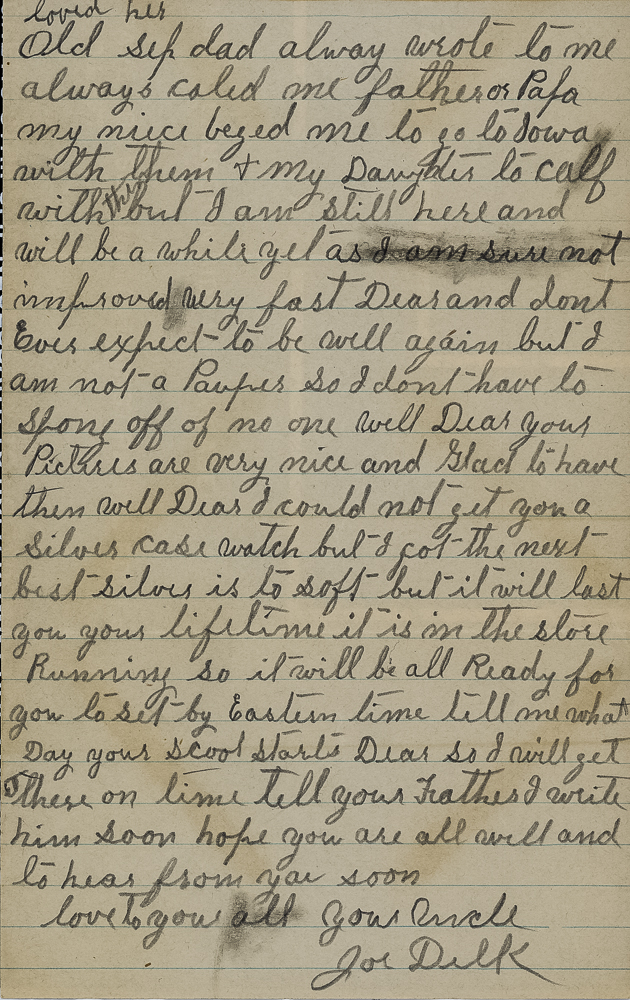 loved her
Old sep dad alway wrote to me
always caled me father or Papa
my niece beged me to go to Iowa
with them + my Daughter to calf
with them but I am still here and
will be a while yet as I am sure not
improved very fast Dear and dont
Ever expect to be well again but I
am not a Pauper so I dont have to
spong off of no one well Dear your
Pictures are very nice and Glad to have
them well Dear I could not get you a
silver case watch but I got the next
best silver is to soft but it will last
you your lifetime it is in the store
Running so it will be all Ready for
you to set by Eastern time tell me what
Day your scool starts Dear so I will get
there on time tell your Father I write
him soon hope you are all well and
to hear from you soon
love to you all your Uncle
Joe Delk